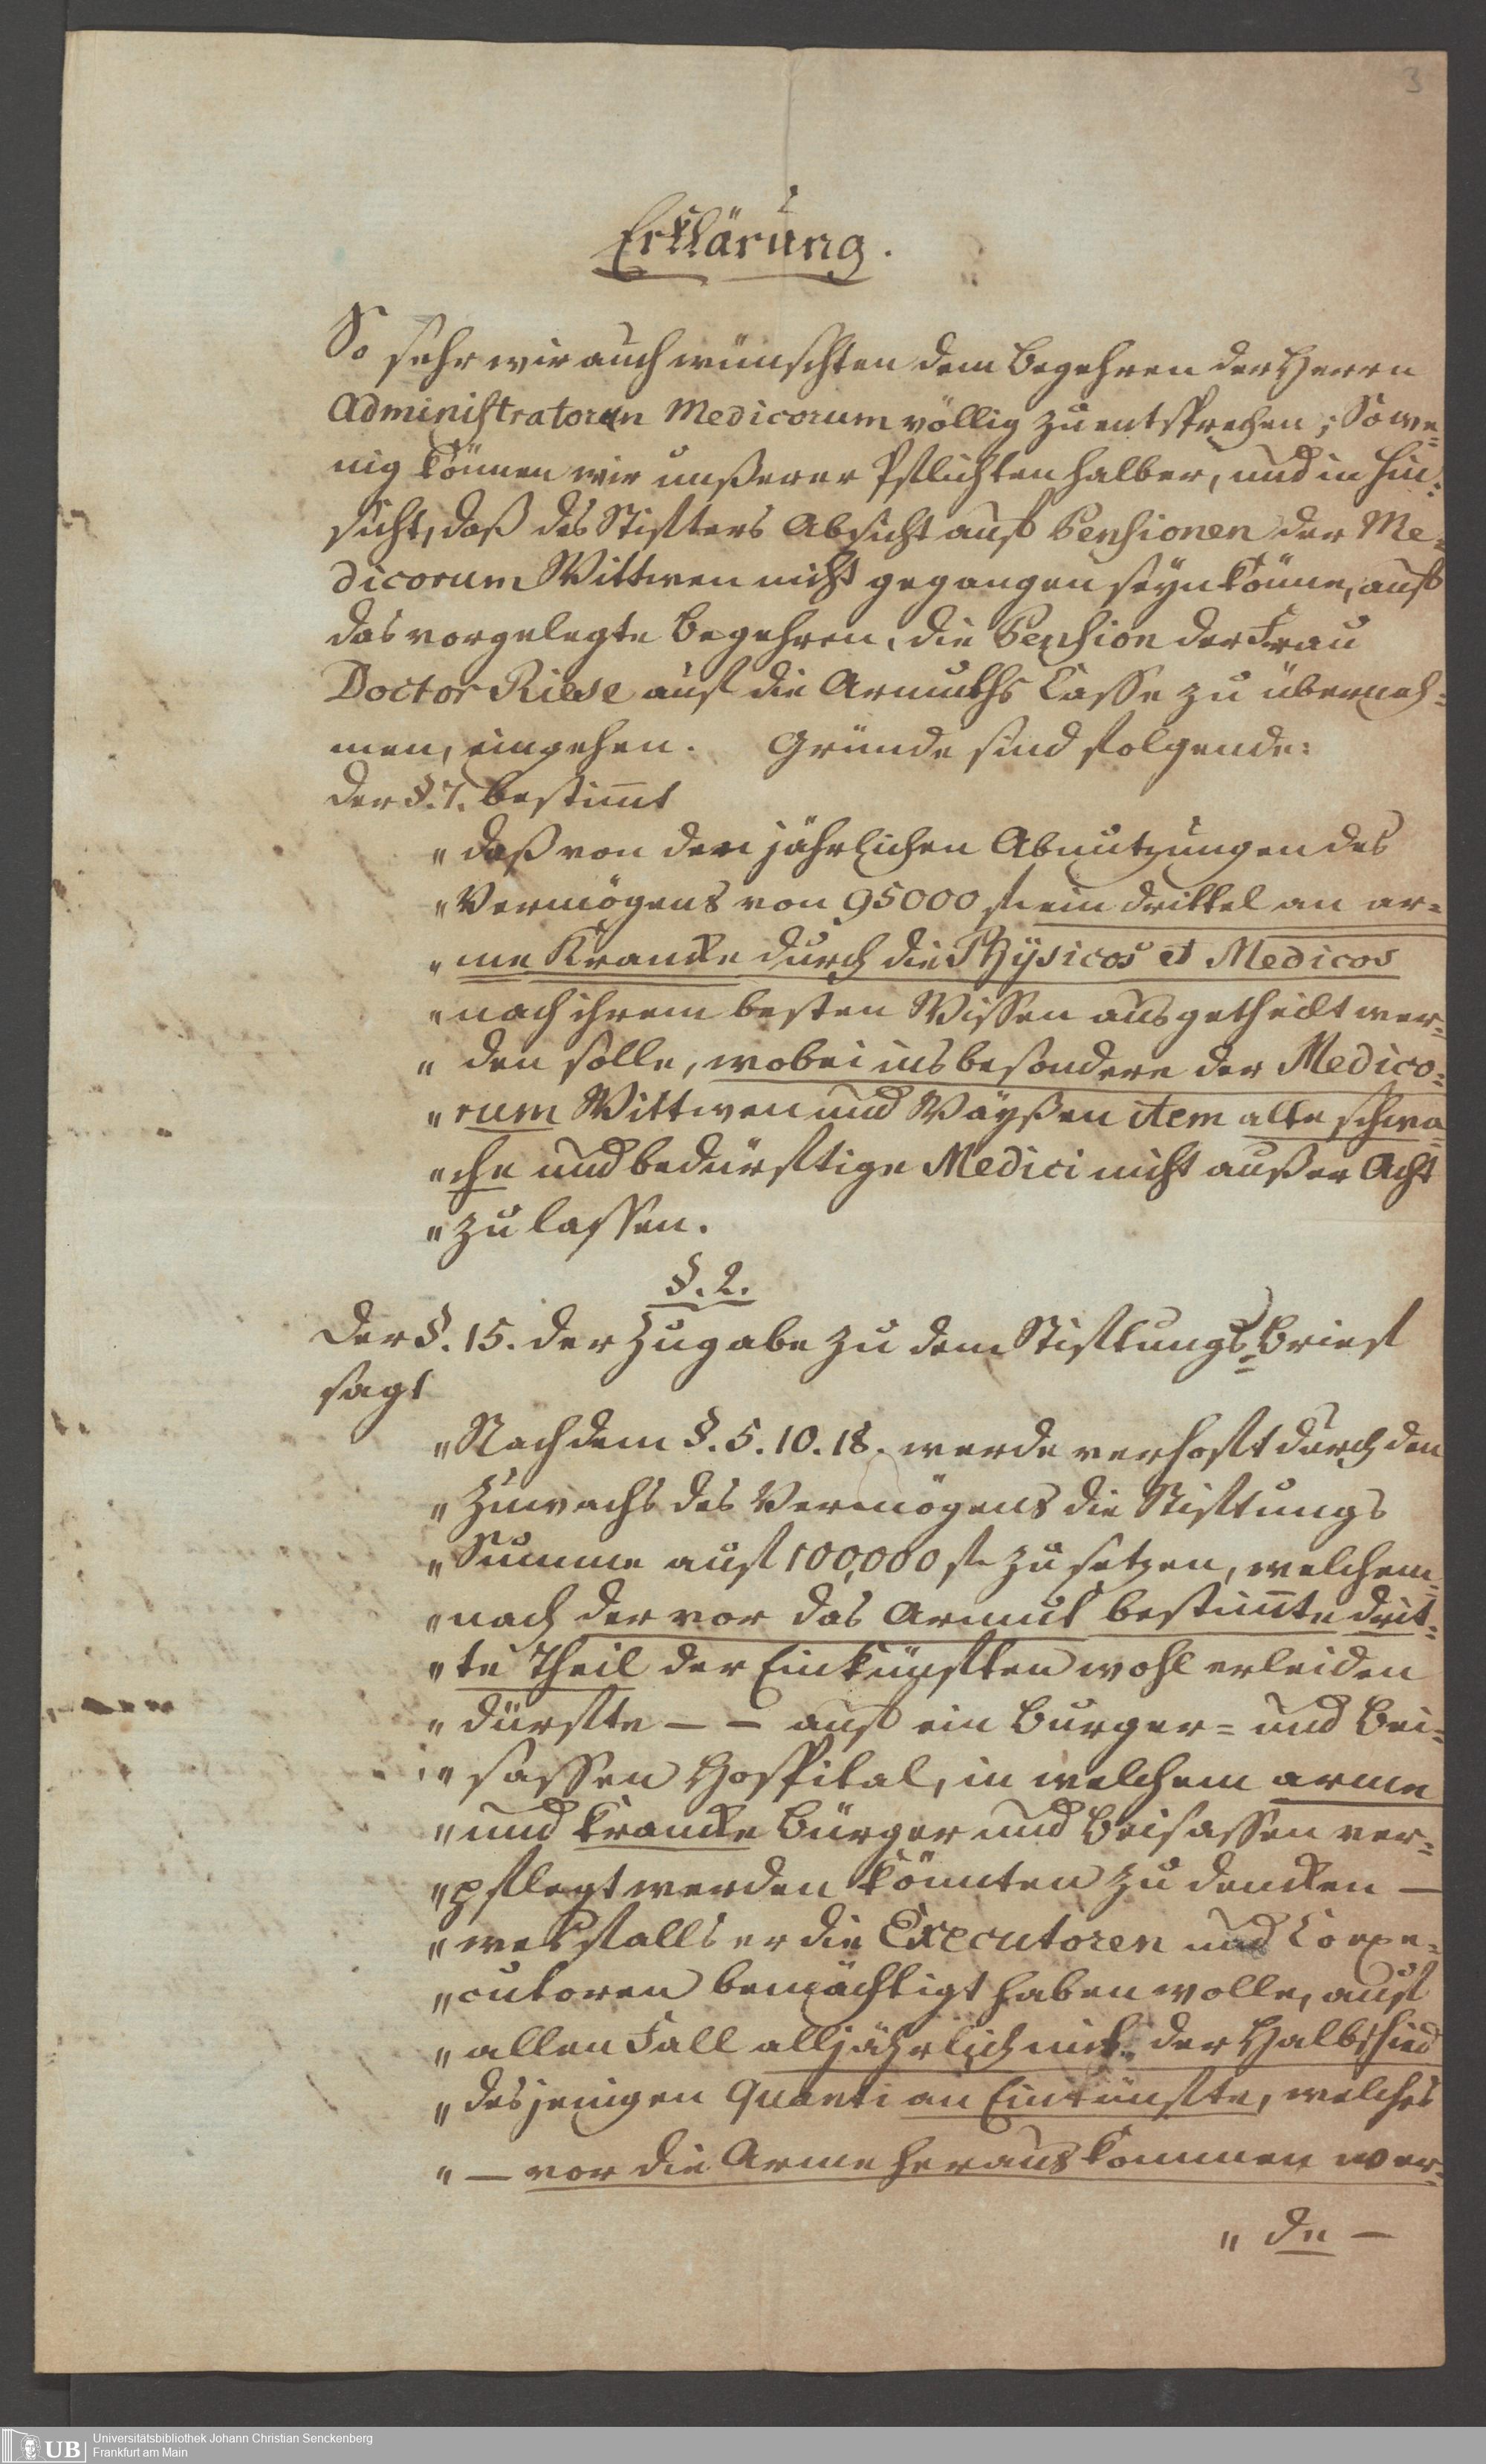 3
Erklärung.
So sehr wir auch wünschten dem Begehren der Herrn
Administratoren Medicorum völlig zu entsprechen; So we=
nig können wir unßerer Pflichten halber, und in Hin=
sicht, daß des Stifters Absicht auf Pensionen der Me=
dicorum Wittwen nicht gegangen seyn könne, auf
das vorgelegte Begehren, die Pension der Frau
Doctor Riese auf die Armuths Casse zu überneh=
men, eingehen. Gründe sind folgende:
Der §. 7. bestimt
„ daß von den jährlichen Abnutzungen des
„ Vermögens von 95000 f. ein drittel an ar=
„ me Krancke durch die Physicos et Medicos
„ nach ihrem besten Wissen ausgetheilt wer=
„ den solle, wobei insbesondere der Medico=
„ rum Wittwen und Wayßen item alte schwa=
„ che und bedürftige Medici nicht außer Acht
„ zu lassen.
§. 2.
Der §. 15. der Zugabe zu dem Stiftungs=Brief
sagt
„ Nach dem §. 5. 10. 18. werde verhoft durch den
„ Zuwachs des Vermögens die Stiftungs
„ Summe auf 100,000 f. zu setzen, welchem=
„ nach der vor das Armut bestimte drit=
„ te Theil der Einkünften wohl erleiden
„ dürfte – – auf ein Burger= und Bei=
„ sassen Hospital, in welchem arme
„ und krancke Bürger und Beisassen ver=
„ pflegt werden könnten zu dencken —
„ wesfalls er die Executoren und Coexe=
„ cutoren bemächtigt haben wolle, auf
„ allen Fall alljährlich mit der Halbschied
„ desjenigen Quanti an Einkünfte, welches
„ — vor die Arme heraus kommen wer=
„ de —
UB
Universitätsbibliothek Johann Christian Senckenberg
Frankfurt am Main